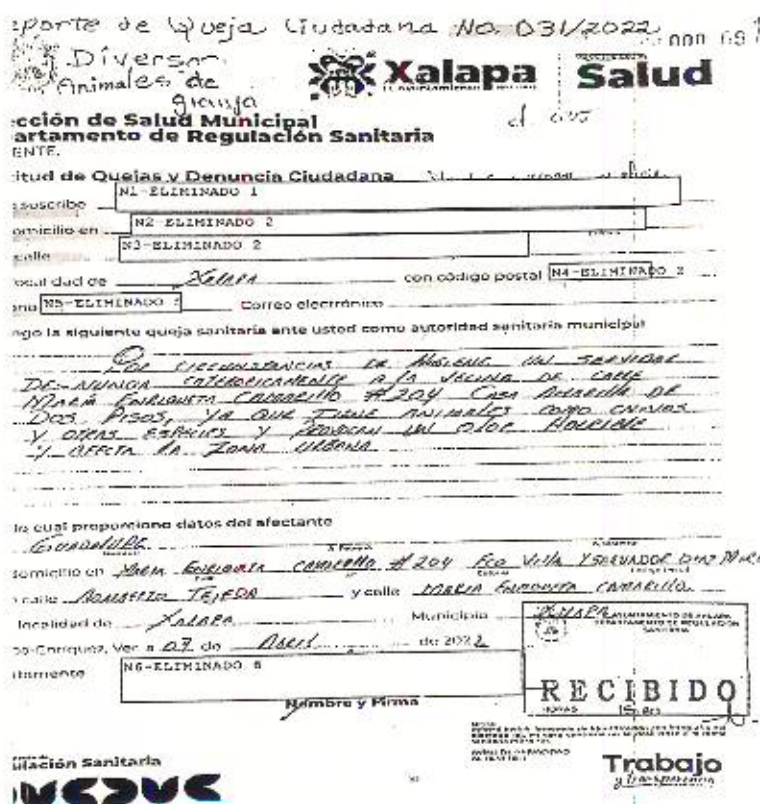 eporte de Queja Ciudadana No. 031/2022
Diversos
Animales de
granja
Xalapa
Salud
cción de Salud Municipal
artamento de Regulación Sanitaria
ENTE.
itud de Quejas y Denuncia Ciudadana
suscribe N1-ELIMINADO 1
omicilio en N2-ELIMINADO 2
calle N3-ELIMINADO 2
ocalidad de Xalapa con código postal N4-ELIMINADO 2
ono N5-ELIMINADO Correo electrónico
ngo la siguiente queja sanitaria ante usted como autoridad sanitaria municipal
POR CIRCUNSTANCIAS DE HIGIENE UN SERVIDOR
DE-NUNCIA CATEGORICAMENTE A LA VECINA DE CALLE
MARÍA ENRIQUETA CAMARILLO #204 CASA AMARILLA DE
DOS PISOS, YA QUE TIENE ANIMALES COMO CHIVOS
Y OTRAS ESPECIES Y PROVOCAN UN OLOR HORRIBLE
Y AFECTA LA ZONA URBANA
lo cual proporciono datos del afectante
GUADALUPE
omicilio en MARIA ENRIQUETA CAMARILLO #204 FCO VILLA Y SALVADOR DIAZ MIRO
calle ADALBERTO TEJEDA y calle MARIA ENRIQUETA CAMARILLO
localidad de XALAPA Municipio XALAPA
pa-Enríquez, Ver a 07 de ABRIL de 2022
AYUNTAMIENTO DE XALAPA
DEPARTAMENTO DE REGULACIÓN
SANITARIA
tamente N6-ELIMINADO 6
RECIBIDO
HORAS
Nombre y Firma
ulación Sanitaria
Trabajo
y transparencia